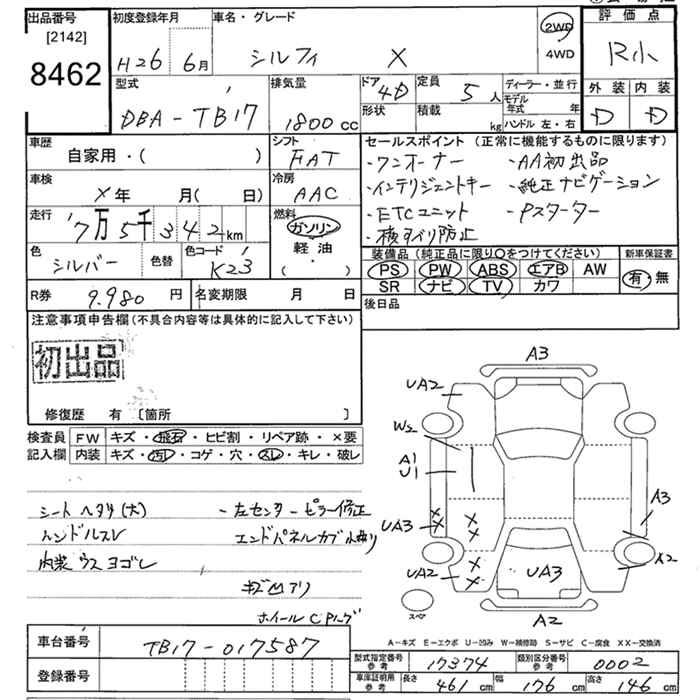 出品番号 初度登録年月 車名・グレード 評価点
[2142]
8462
H26 6月 シルフィ X 2WD 4WD R小
型式 排気量 ドア 4D 定員 5人 ディーラー・並行 外装 内装
DBA-TB17 1800cc 形状 積載 kg モデル年式 年 D D
ハンドル 左・右
車歴 シフト セールスポイント (正常に機能するものに限ります)
自家用・( ) FAT ・ワンオーナー ・AA初出品
車検 冷房 ・インテリジェントキー ・純正ナビゲーション
X年 月( 日) AAC ・ETCユニット ・Pスターター
走行 燃料 ・横すべり防止
7万5千342km ガソリン 軽油
装備品(純正品に限り○をつけてください) 新車保証書
色 シルバー 色替 色コード K23
PS PW ABS エアB AW 有・無
SR ナビ TV カワ
R券 9.980円 名変期限 月 日 後日品
注意事項申告欄(不具合内容等は具体的に記入して下さい)
初出品
修復歴 有[箇所 ]
検査員 FW キズ・飛石・ヒビ割・リペア跡・×要
記入欄 内装 キズ・汚レ・コゲ・穴・スレ・キレ・破レ
シートヘタリ(大) -左センターピラー修正
ハンドルスレ エンドパネルカブリ小曲り
内装ウスヨゴレ
キズ凹アリ
ホイールCPリング
A3
UA2
W2
A1
U1
A3
UA3
X X X X
A2
UA2
X X
UA3
スペア
A2
A-キズ E-エクボ U-凹み W-補修跡 S-サビ C-腐食 XX-交換済
車台番号 TB17-017587
登録番号
型式指定番号 参考 17374 類別区分番号 参考 0002
車庫証明用 参考 長さ 461cm 幅 176cm 高さ 146cm